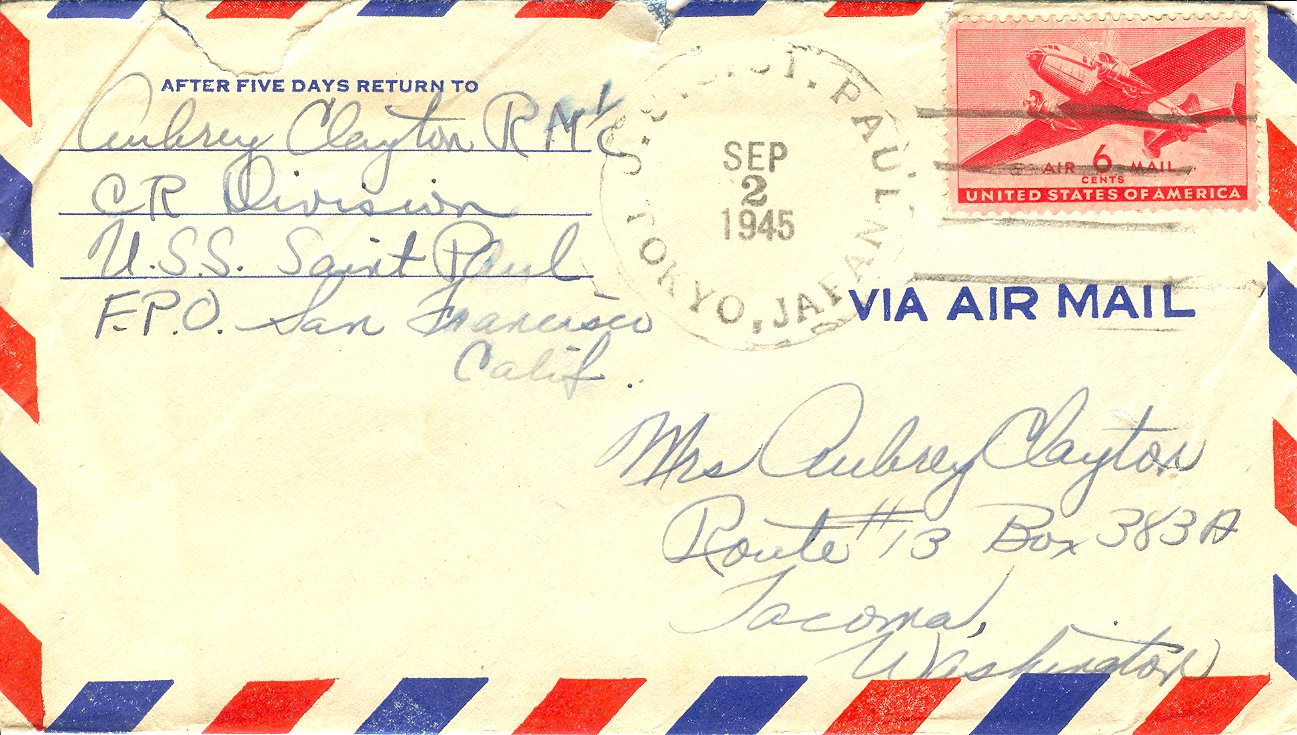 AFTER FIVE DAYS RETURN TO
Aubrey Clayton RM 1/c
CR Division
U.S.S. Saint Paul
F.P.O. San Francisco
Calif.
U.S.S. ST. PAUL
SEP
2
1945
TOKYO, JAPAN
AIR 6 MAIL
CENTS
UNITED STATES OF AMERICA
VIA AIR MAIL
Mrs Aubrey Clayton
Route #13 Box 383A
Tacoma,
Washington